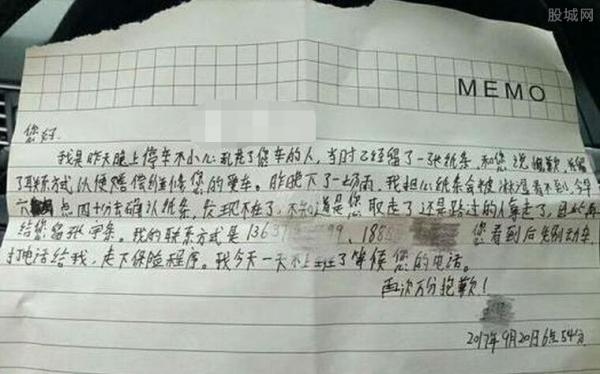 股城网
MEMO
您好.
我是昨天晚上停车不小心刮花了您车的人,当时已经留了一张纸条,和您说抱歉,
了联系方式以便赔偿给您的爱车。昨晚下了一场雨,我担心纸条会被淋湿看不到,今早
六点四十分去确认纸条,发现不在了,不知道是您取走了还是路过的人拿走了,
给您留张字条。我的联系方式是1363 99、188 您看到后先别动车,
打电话给我,走下保险程序。我今天一天不上班了等候您的电话。
再次万分抱歉!
2017年9月20日6点54分